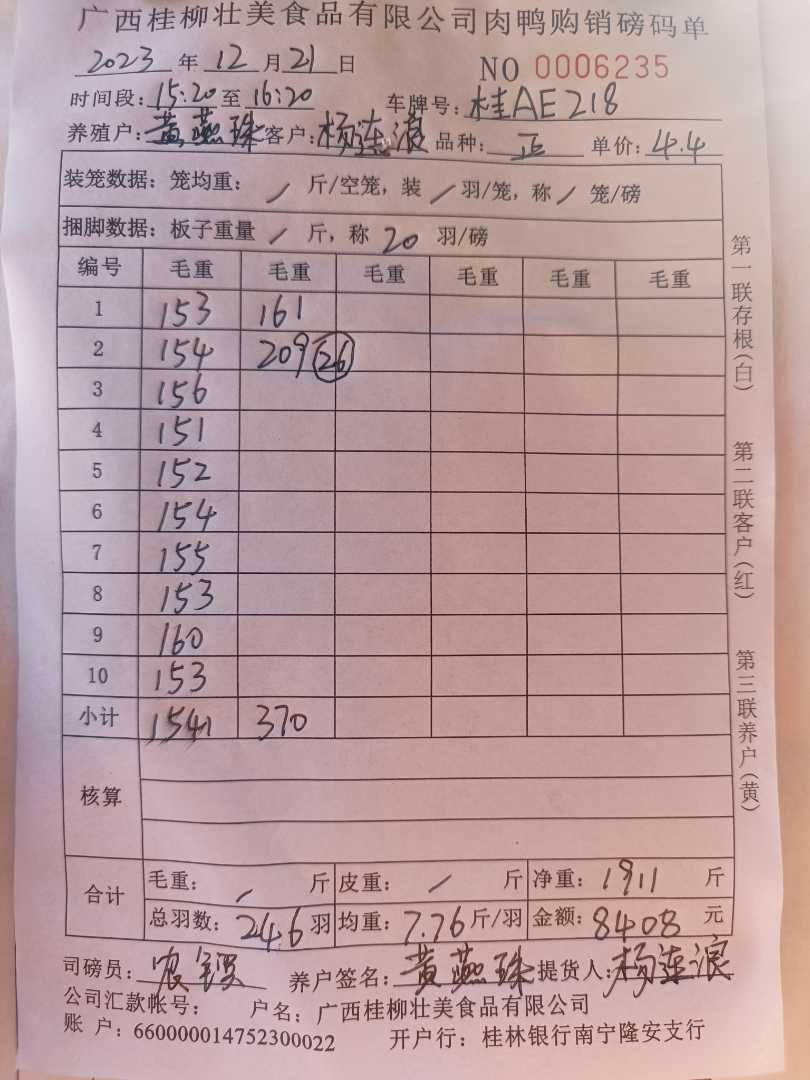 广西桂柳壮美食品有限公司肉鸭购销磅码单
2023 年 12 月 21 日 NO 0006235
时间段: 15:20 至 16:20 车牌号: 桂AE218
养殖户: 黄燕珠 客户: 杨连浪 品种: 正 单价: 4.4
装笼数据: 笼均重: / 斤/空笼, 装 / 羽/笼, 称 / 笼/磅
捆脚数据: 板子重量 / 斤, 称 20 羽/磅
编号 毛重 毛重 毛重 毛重 毛重 毛重
1 153 161
2 154 209 26
3 156
4 151
5 152
6 154
7 155
8 153
9 160
10 153
小计 1541 370
核算
合计 毛重: / 斤 皮重: / 斤 净重: 1911 斤
总羽数: 246 羽 均重: 7.76 斤/羽 金额: 8408 元
司磅员: 农 养户签名: 黄燕珠 提货人: 杨连浪
公司汇款帐号: 户名: 广西桂柳壮美食品有限公司
账 户: 660000014752300022 开户行: 桂林银行南宁隆安支行
第一联存根(白)
第二联客户(红)
第三联养户(黄)